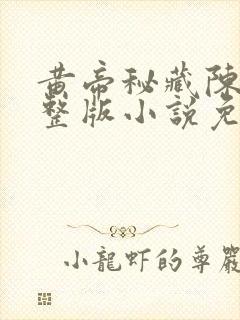 黄帝秘藏陳
整版小說免
小龍蝦的尊嚴